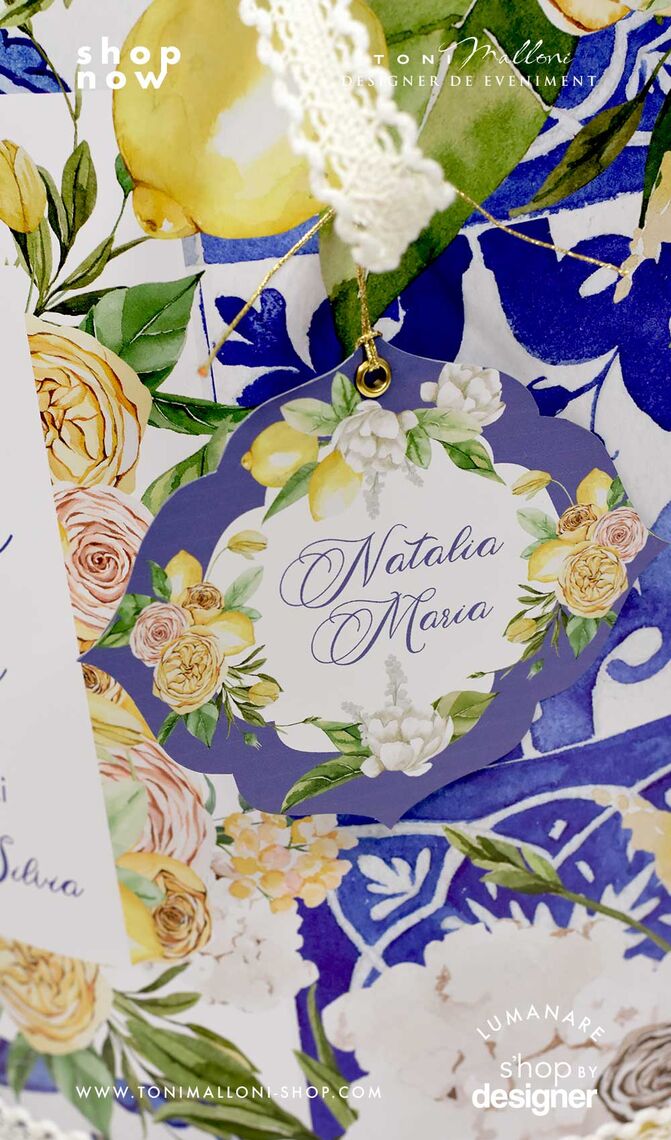 shop
now
TONI Malloni
DESIGNER DE EVENIMENT
Natalia
Maria
Silvia
LUMANARE
s'hop BY
designer
WWW.TONIMALLONI-SHOP.COM